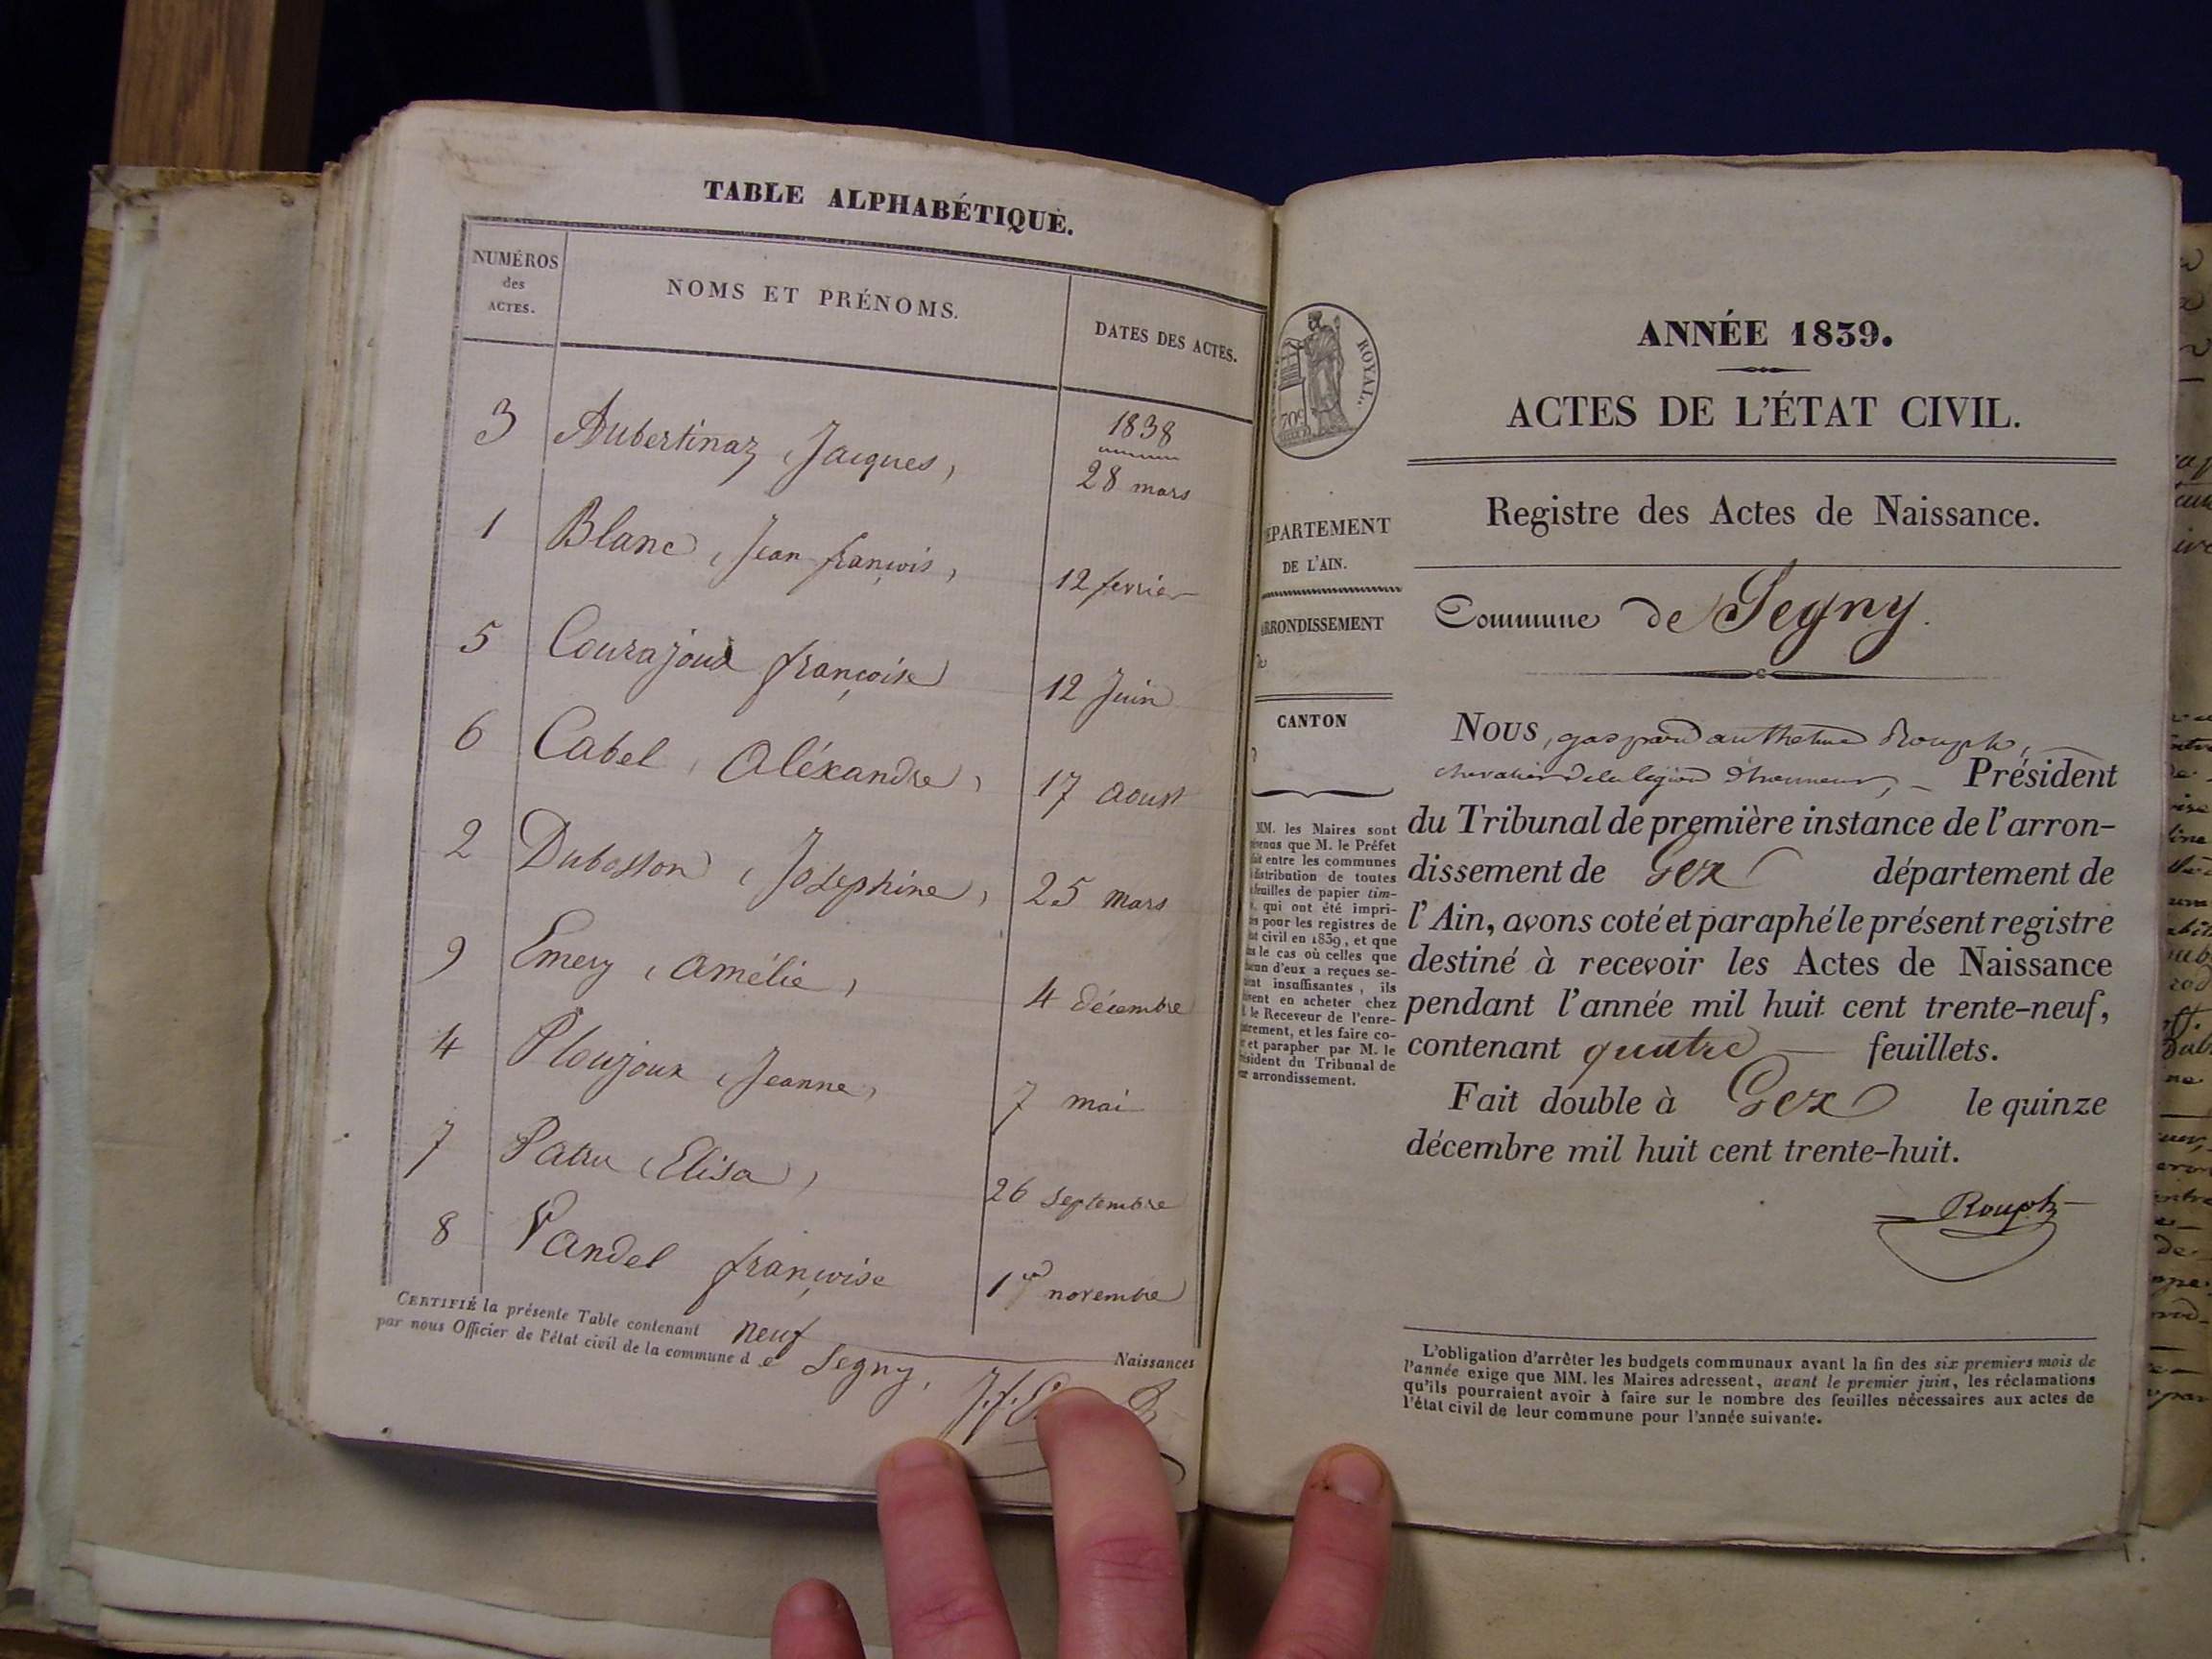 TABLE ALPHABÉTIQUE.
NUMÉROS
des
ACTES.
NOMS ET PRÉNOMS.
DATES DES ACTES.
1838
3 Aubertinaz, Jacques, 28 mars
1 Blanc, Jean françois, 12 fevrier
5 Courajoud françoise 12 Juin
6 Cabel, Aléxandre, 17 aoust
2 Dubosson, Josephine, 25 mars
9 Emery, Amélie, 4 décembre
4 Ploujoux, Jeanne, 7 mai
7 Patru, Elisa, 26 septembre
8 Vandel françoise 1er novembre
CERTIFIÉ la présente Table contenant neuf Naissances
par nous Officier de l'état civil de la commune de Segny,
ROYAL.
ANNÉE 1839.
ACTES DE L'ÉTAT CIVIL.
Registre des Actes de Naissance.
DE L'AIN.
CANTON
Commune de Segny.
NOUS, gaspard anthelme Rouph,
chevalier de la légion d'honneur, Président
du Tribunal de première instance de l'arron-
dissement de Gex département de
l'Ain, avons coté et paraphé le présent registre
destiné à recevoir les Actes de Naissance
pendant l'année mil huit cent trente-neuf,
contenant quatre feuillets.
Fait double à Gex le quinze
décembre mil huit cent trente-huit.
Rouph
MM. les Maires sont
que M. le Préfet
entre les communes
distribution de toutes
feuilles de papier tim-
qui ont été impri-
pour les registres de
civil en 1839, et que
le cas où celles que
d'eux a reçues se-
insuffisantes, ils
en acheter chez
le Receveur de l'enre-
et les faire co-
et parapher par M. le
du Tribunal de
arrondissement.
L'obligation d'arrêter les budgets communaux avant la fin des six premiers mois de
l'année exige que MM. les Maires adressent, avant le premier juin, les réclamations
qu'ils pourraient avoir à faire sur le nombre des feuilles nécessaires aux actes de
l'état civil de leur commune pour l'année suivante.